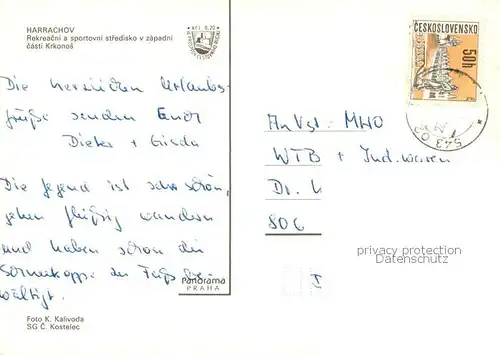 HARRACHOV
Rekreační a sportovní středisko v západní
části Krkonoš
KčI 0,20
ČESKOSLOVENSKO
50h
Die herzlichen Urlaubs-
grüße senden Euch
Dieter + Gisela
Die Gegend ist sehr schön,
gehen fleißig wandern
und haben schon die
Schneekoppe
wältigt.
An Vst. MHO
WTB + Ind.waren
Dr.
806
543
privacy protection
Datenschutz
Panorama
PRAHA
Foto K. Kalivoda
SG Č. Kostelec